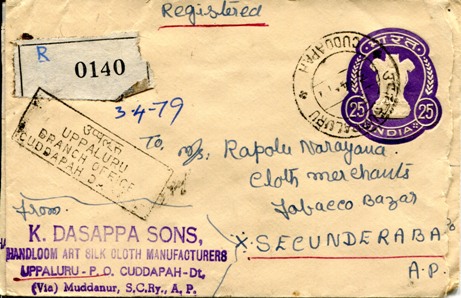 Registered
R
0140
3-4-79
UPPALURU
BRANCH OFFICE
CUDDAPAH
CUDDAPAH
भारत
25
25
INDIA
To,
M/s. Rapolu Narayana
Cloth merchants
Tobacco Bazar
X. SECUNDERABA
A.P.
From
K. DASAPPA SONS,
HANDLOOM ART SILK CLOTH MANUFACTURERS
UPPALURU - P.O. CUDDAPAH-Dt,
(Via) Muddanur, S.C.Ry., A. P.